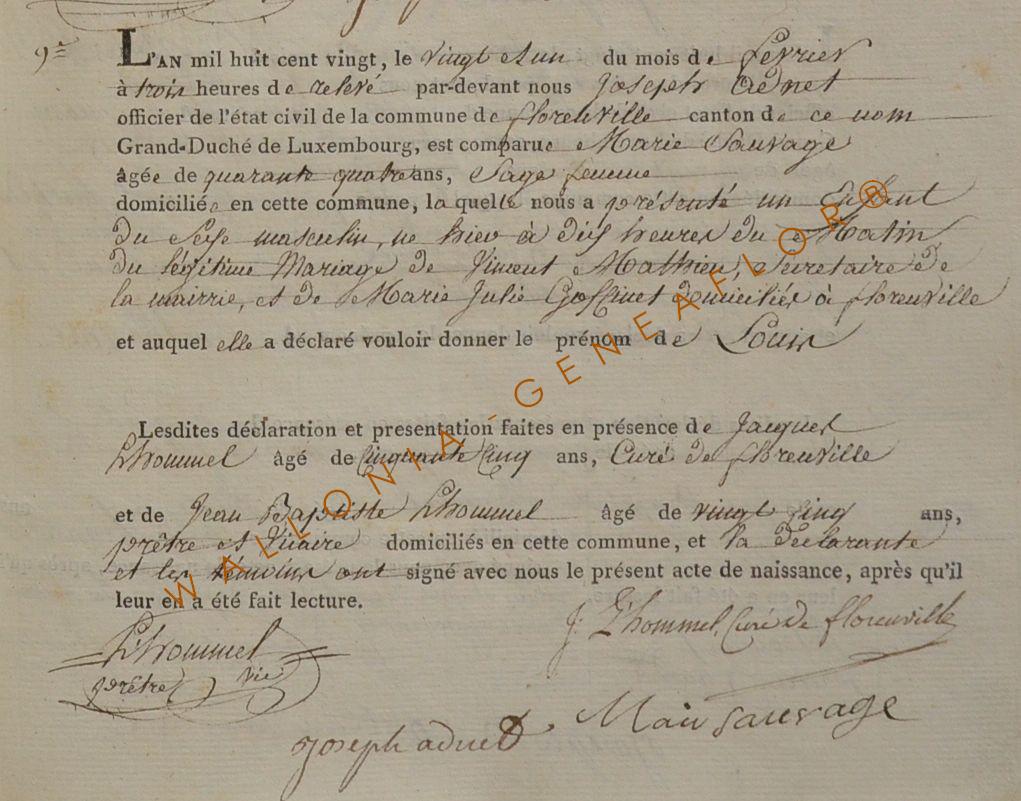 9e
L'AN mil huit cent vingt, le vingt et un du mois de février
à trois heures de relevé par-devant nous Joseph Adnet
officier de l'état civil de la commune de florenville canton de ce nom
Grand-Duché de Luxembourg, est comparue Marie Sauvage
âgée de quarante quatre ans, Sage femme
domiciliée en cette commune, la quelle nous a présenté un Enfant
du Sexe masculin, né hier à dix heures du Matin
du légitime Mariage de Vincent Mathieu, Secretaire de
la mairrie, et de Marie Julie Goffinet domiciliés à florenville
et auquel elle a déclaré vouloir donner le prénom de Louis
Lesdites déclaration et presentation faites en présence de Jacques
Lhommel âgé de Cinquante Cinq ans, Curé de florenville
et de Jean Baptiste Lhommel âgé de vingt Cinq ans,
prêtre et Vicaire domiciliés en cette commune, et la déclarante
et les témoins ont signé avec nous le présent acte de naissance, après qu'il
leur en a été fait lecture.
Lhommel
prêtre vic
J. L'hommel, Curé de florenville
Mari sauvage
joseph adnet
WALLONIA - GENEAFLOR®